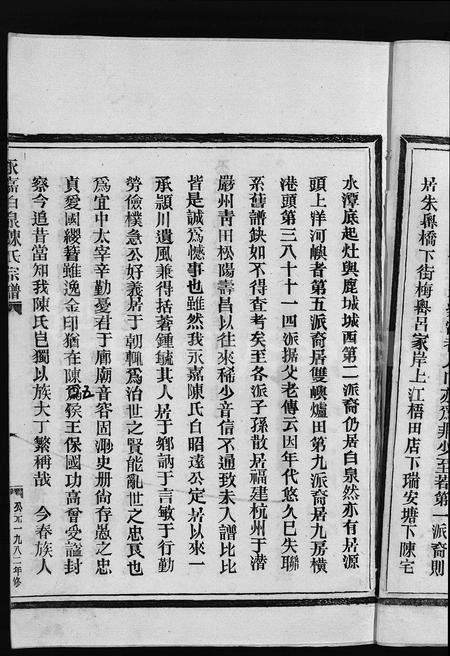 居朱壆橋下街梅壆呂家岸上江梧田店下瑞安塘下陳宅
水潭底起灶與鹿城城西第二派裔仍居白泉然亦有居源
頭上洋河嶼者第五派裔居雙嶼爐田第九派裔居九房橫
港頭第三八十十一四派据父老傳云因年代悠久已失聯
系舊譜缺如不得查考矣至各派子孫散居福建杭州于潛
嚴州靑田松陽壽昌以往來稀少音信不通致未入譜比比
皆是誠爲憾事也雖然我永嘉陳氏自昭遠公定居以來一
承潁川遺風兼得括蒼鍾毓其人居于鄉訥于言敏于行勤
勞儉樸急公好義居于朝輒爲治世之賢能亂世之忠良也
爲宜中太宰辛勤憂君于廊廟音容固渺史册尙存愚之忠
貞愛國纓簪雖逸金印猶在陳爲五侯王保國功高曾受謚封
察今追昔當知我陳氏豈獨以族大丁繁稱哉 今春族人
永嘉白泉陳氏宗譜
公元一九八二年修